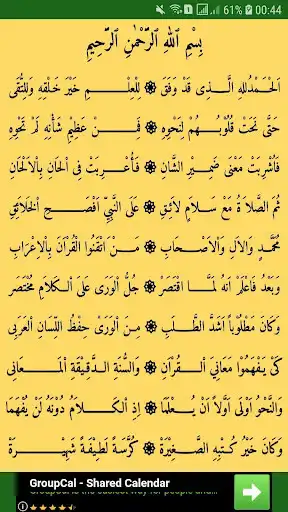 51% 00:44
بِسْمِ ٱللّٰهِ ٱلرَّحْمٰنِ ٱلرَّحِيْمِ
اَلْحَمْدُ للهِ الَّـــذِى قَدْ وَفَّقَ ۞ لِلْعِلْـــمِ خَيْرَ خَلْقِهِ وَلِلتُّقَى
حَتَّى نَحَتْ قُلُوْبُـــهُمْ لِنَحْوِهِ ۞ فَمِـــنْ عَظِيْمِ شَأْنِهِ لَمْ تَحْوِهِ
فَأُشْرِبَتْ مَعْنَى ضَمِـيْرِ الشَّانِ ۞ فَأُعْـرِبَتْ فِى الْحَانِ بِالْاَلْحَانِ
ثُمَّ الصَّلَاةُ مَعْ سَـــلَامٍ لَائِـقِ ۞ عَلَى النَّبِيِّ اَفْصَـــحِ الْخَلَائِقِ
مُحَمَّدٍ وَالاٰلِ وَالْاَصْحَابِ ۞ مَـــنْ اَتْقَنُوا الْقُرْآنَ بِالْاِعْرَابِ
وَبَعْدُ فَاعْلَمْ اَنَّهُ لَمَّـــا اقْتَصَرْ ۞ جُلُّ الْوَرَى عَلَى الْكَـلَامِ الْمُخْتَصَرْ
وَكَانَ مَطْلُوْبًا اَشَدَّ الطَّلَـــبِ ۞ مِـنَ الْوَرَى حِفْظُ اللِّسَانِ الْعَرَبِي
كَىْ يَفْهَمُوْا مَعَانِيَ الْـــقُرْآنِ ۞ وَالسُّنَّةِ الدَّقِيْقَةِ الْـمَـــعَانِي
وَالنَّحْوُ اَوْلَى اَوَّلًا اَنْ يُـــعْلَمَا ۞ اِذِ الْكَـــلَامُ دُوْنَهُ لَنْ يُفْهَمَا
وَكَانَ خَيْرُ كُتْبِهِ الصَّغِيْرَةْ ۞ كُرَّاسَةً لَطِيْفَةً شَهِيْـــرَةْ
GroupCal - Shared Calendar
GroupCal is the easiest way for people and...